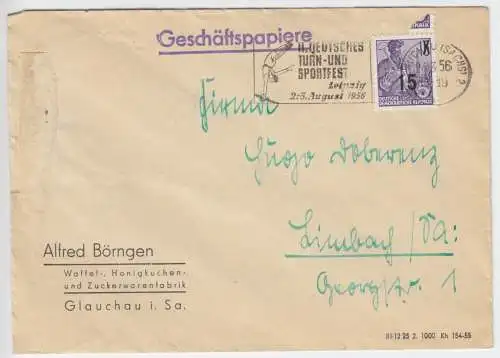 Geschäftspapiere
II. DEUTSCHES
TURN- UND
SPORTFEST
Leipzig
2.-5. August 1956
15
DEUTSCHE
DEMOKRATISCHE REPUBLIK
(SACHS) 2
56
Firma
Hugo Doberenz
Limbach/Sa:
Georgstr. 1
Alfred Börngen
Waffel-, Honigkuchen-
und Zuckerwarenfabrik
Glauchau i. Sa.
III-12 25 2. 1000 Kh 154-55